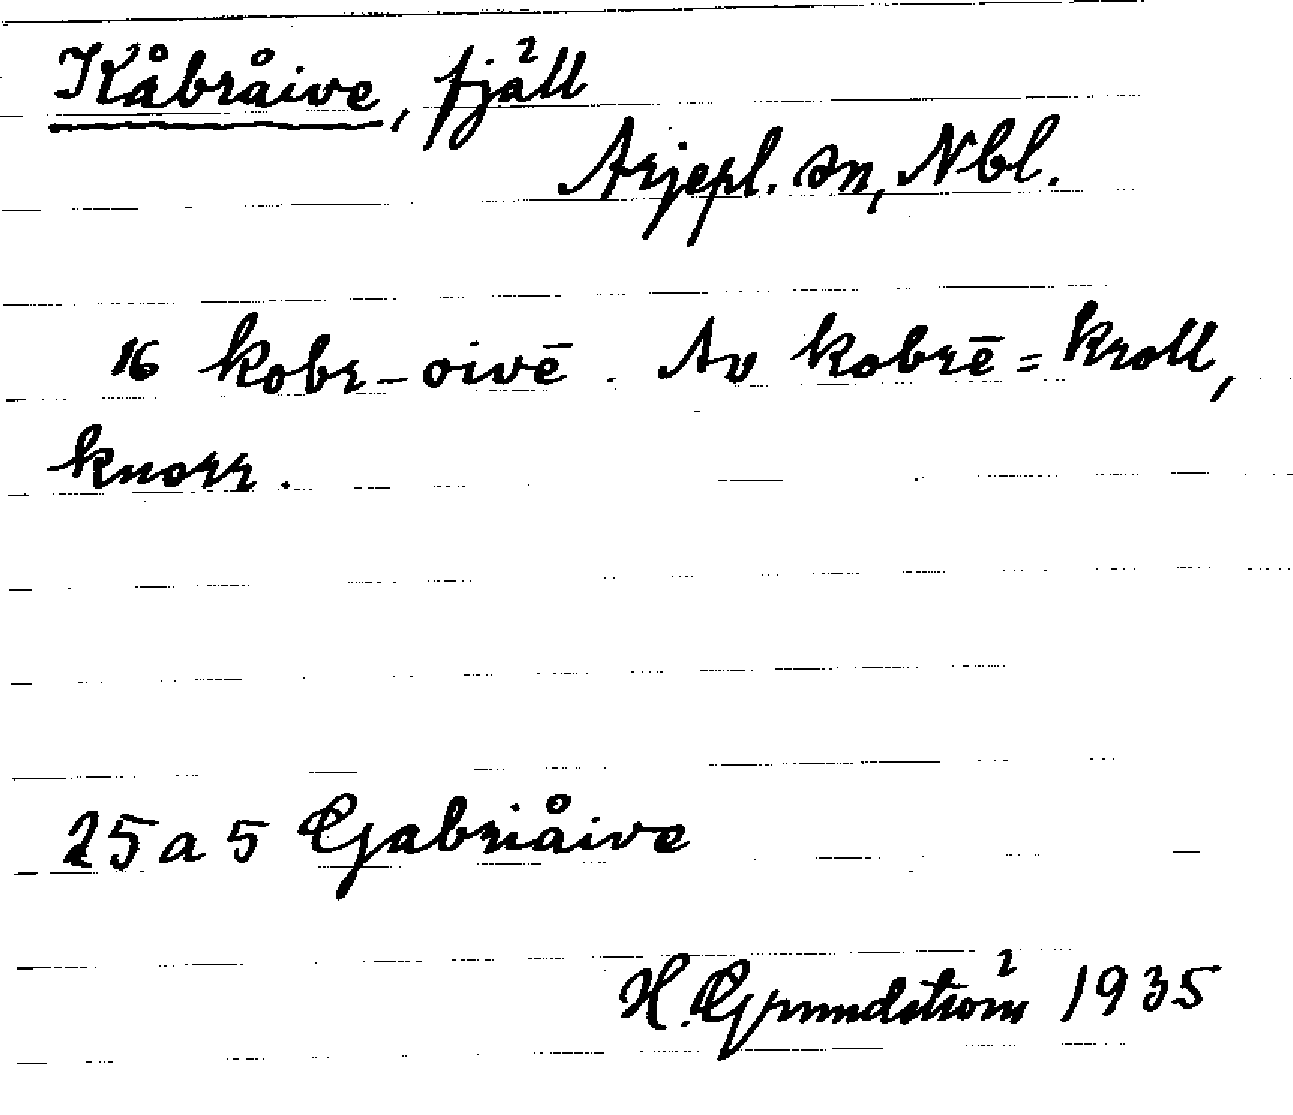 Kåbråive, fjäll
Arjepl. sn, Nbl.
16 kobr-oivē. Av kobrē = kroll,
knorr.
25 a 5 Gabriåive
H. Grundström 1935